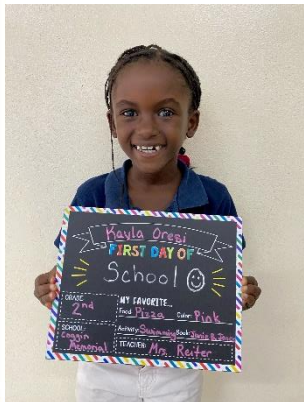 Kayla Oresi
FIRST DAY OF
School
GRADE:
2nd
SCHOOL:
Coggin
Memorial
MY FAVORITE...
Food: Pizza Color: Pink
Activity: Swimming Book: Junie B. Jones
TEACHER: Mrs. Reiter